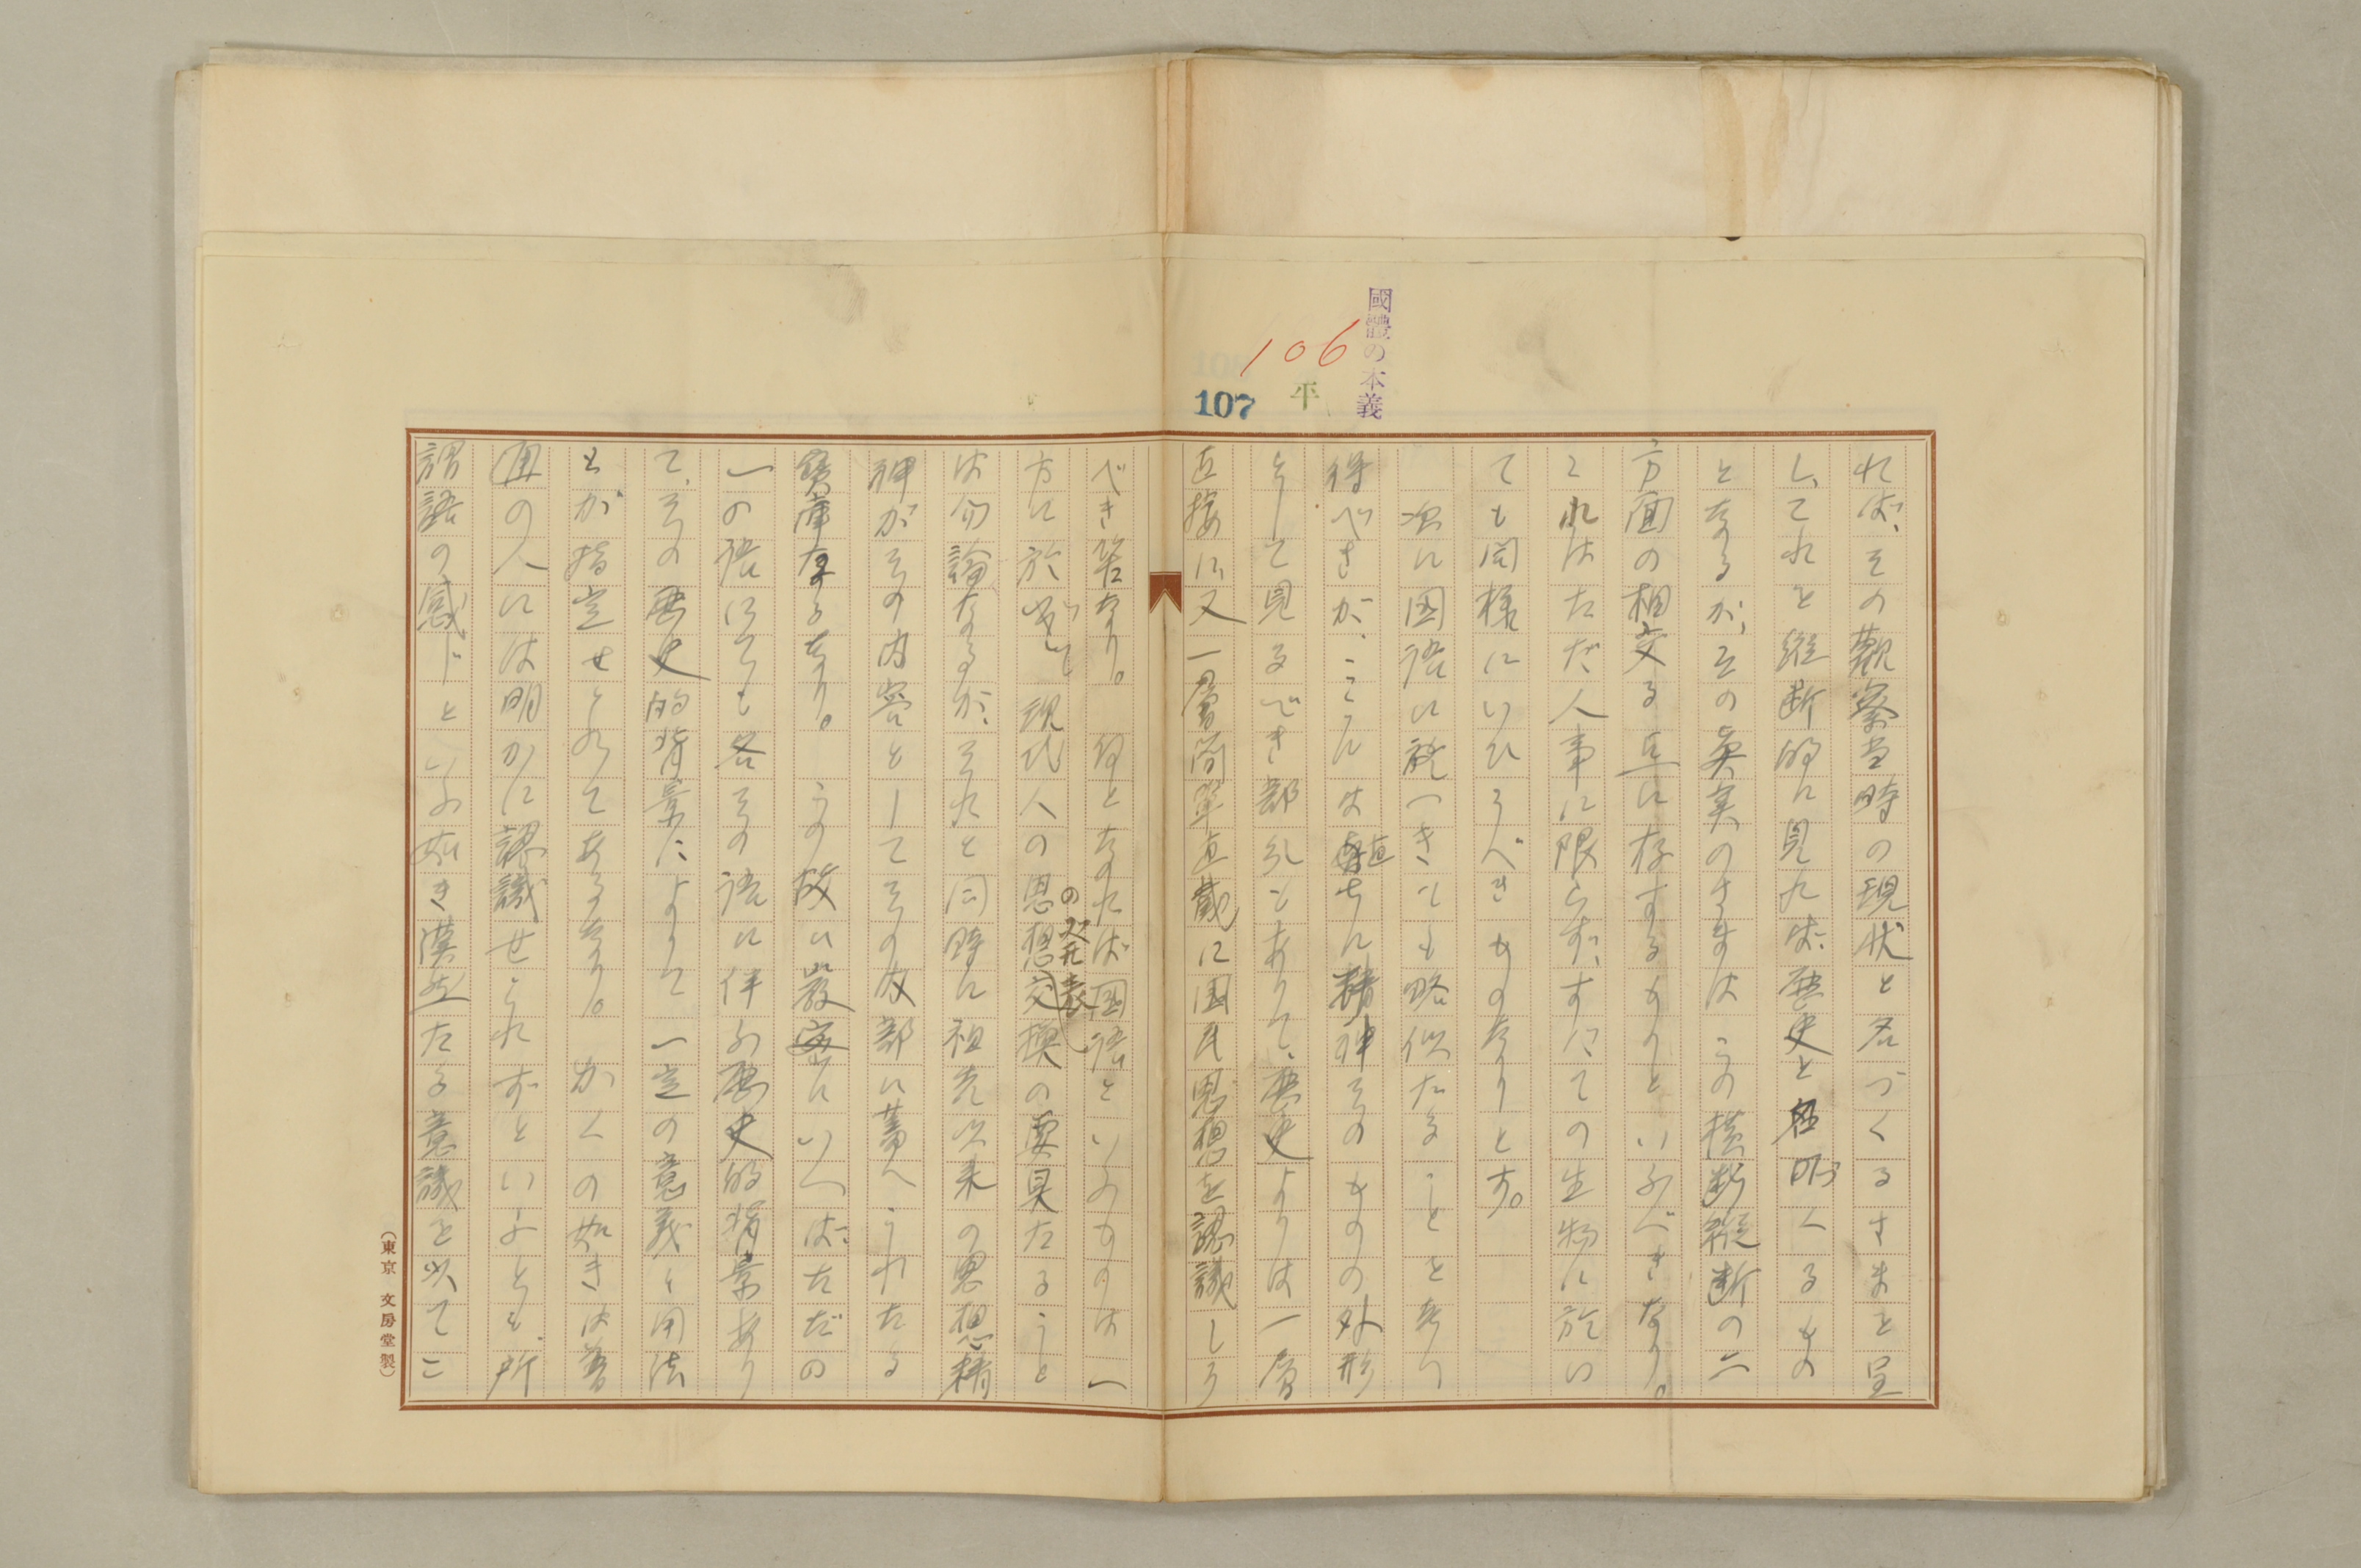 國體の本義
106
平
107
れば、その觀察当時の現状と名づくるさまを呈
し、これを縦断的に見れば、歴史と名づくるもの
となるが、その眞実のすがたはこの横断縦断の二
方面の相交る点に存するものといふべきなり。
これはただ人事に限らず、すべての生物に於い
ても同様にいひうべきものなりとす。
次に国語に就いても略似たることを考へ
得べきが、これは直ちに精神そのものの外形
として見るべき部分もありて、歴史よりは一層
直接に、又一層簡単直截に国民思想を認識しう
べき筈なり。何となれば国語といふものは一
方に於いて現代人の思想の発表交換の要具たること
は勿論なるが、それと同時に祖先以来の思想精
神がその内容としてその内部に蓄へられたる
寶庫なるなり。この故に嚴密にいへばただの
一の語にても各その語に伴ふ歴史的背景あり
て、その歴史的背景によりて一定の意義と用法
とが指定せられてあるなり。かくの如きは普
通の人には明かに認識せられずといふとも、所
謂語の感じといふ如き漠然たる意識を以てこ
(東京 文房堂製)